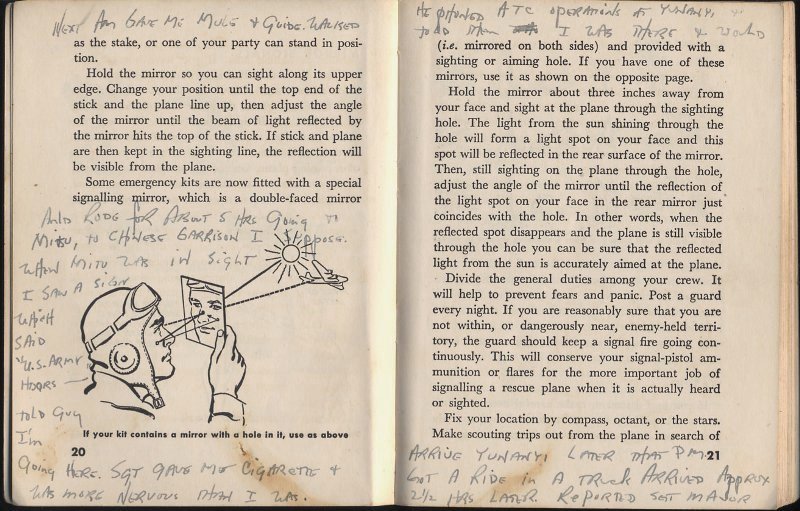 NEXT AM GAVE ME MULE & GUIDE. WALKED
as the stake, or one of your party can stand in posi-
tion.
Hold the mirror so you can sight along its upper
edge. Change your position until the top end of the
stick and the plane line up, then adjust the angle
of the mirror until the beam of light reflected by
the mirror hits the top of the stick. If stick and plane
are then kept in the sighting line, the reflection will
be visible from the plane.
Some emergency kits are now fitted with a special
signalling mirror, which is a double-faced mirror
AND RODE for ABOUT 5 HRS GOING TO
MITU, TO CHINESE GARRISON I SUPPOSE.
WHEN MITU WAS IN SIGHT
I SAW A SIGN
WHICH
SAID
"U.S. ARMY
HDQRS —
told Guy
I'm
Going HERE. SGT GAVE ME CIGARETTE &
WAS MORE NERVOUS THAN I WAS.
If your kit contains a mirror with a hole in it, use as above
20
HE PHONED ATC OPERATIONS AT YUNANYI &
told THEM I WAS THERE & WOULD
(i.e. mirrored on both sides) and provided with a
sighting or aiming hole. If you have one of these
mirrors, use it as shown on the opposite page.
Hold the mirror about three inches away from
your face and sight at the plane through the sighting
hole. The light from the sun shining through the
hole will form a light spot on your face and this
spot will be reflected in the rear surface of the mirror.
Then, still sighting on the plane through the hole,
adjust the angle of the mirror until the reflection of
the light spot on your face in the rear mirror just
coincides with the hole. In other words, when the
reflected spot disappears and the plane is still visible
through the hole you can be sure that the reflected
light from the sun is accurately aimed at the plane.
Divide the general duties among your crew. It
will help to prevent fears and panic. Post a guard
every night. If you are reasonably sure that you are
not within, or dangerously near, enemy-held terri-
tory, the guard should keep a signal fire going con-
tinuously. This will conserve your signal-pistol am-
munition or flares for the more important job of
signalling a rescue plane when it is actually heard
or sighted.
Fix your location by compass, octant, or the stars.
Make scouting trips out from the plane in search of
21
ARRIVE YUNANYI LATER THAT PM.
GOT A RIDE in A TRUCK ARRIVED APPROX
2 1/2 HRS LATER. REPORTED SGT MAJOR